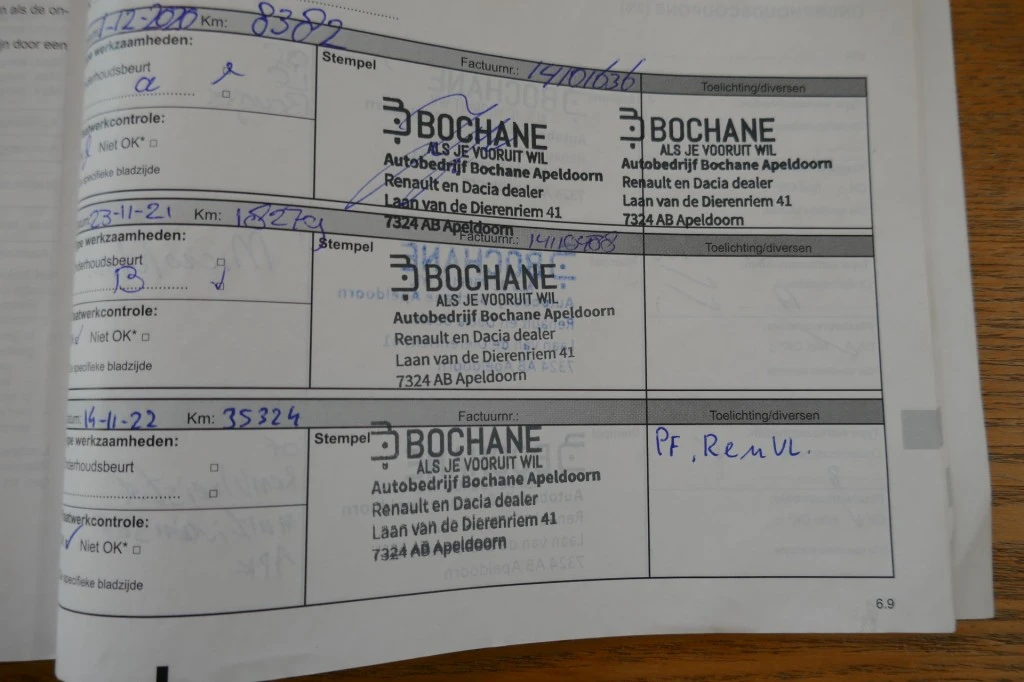 n als de on-
jn door een
1-12-2020 Km: 8382
werkzaamheden:
Stempel
Factuurnr.: 14101636
Toelichting/diversen
derhoudsbeurt
a
BOCHANE
ALS JE VOORUIT WIL
Autobedrijf Bochane Apeldoorn
Renault en Dacia dealer
Laan van de Dierenriem 41
7324 AB Apeldoorn
BOCHANE
ALS JE VOORUIT WIL
Autobedrijf Bochane Apeldoorn
Renault en Dacia dealer
Laan van de Dierenriem 41
7324 AB Apeldoorn
aatwerkcontrole:
Niet OK*
specifieke bladzijde
23-11-21 Km:
Stempel
Factuurnr.:
Toelichting/diversen
pe werkzaamheden:
nderhoudsbeurt
B
BOCHANE
ALS JE VOORUIT WIL
Autobedrijf Bochane Apeldoorn
Renault en Dacia dealer
Laan van de Dierenriem 41
7324 AB Apeldoorn
aatwerkcontrole:
Niet OK*
specifieke bladzijde
um: 14-11-22 Km: 35324
Factuurnr.:
Toelichting/diversen
pe werkzaamheden:
Stempel
nderhoudsbeurt
BOCHANE
ALS JE VOORUIT WIL
Autobedrijf Bochane Apeldoorn
Renault en Dacia dealer
Laan van de Dierenriem 41
7324 AB Apeldoorn
PF, RemVL.
aatwerkcontrole:
Niet OK*
specifieke bladzijde
6.9